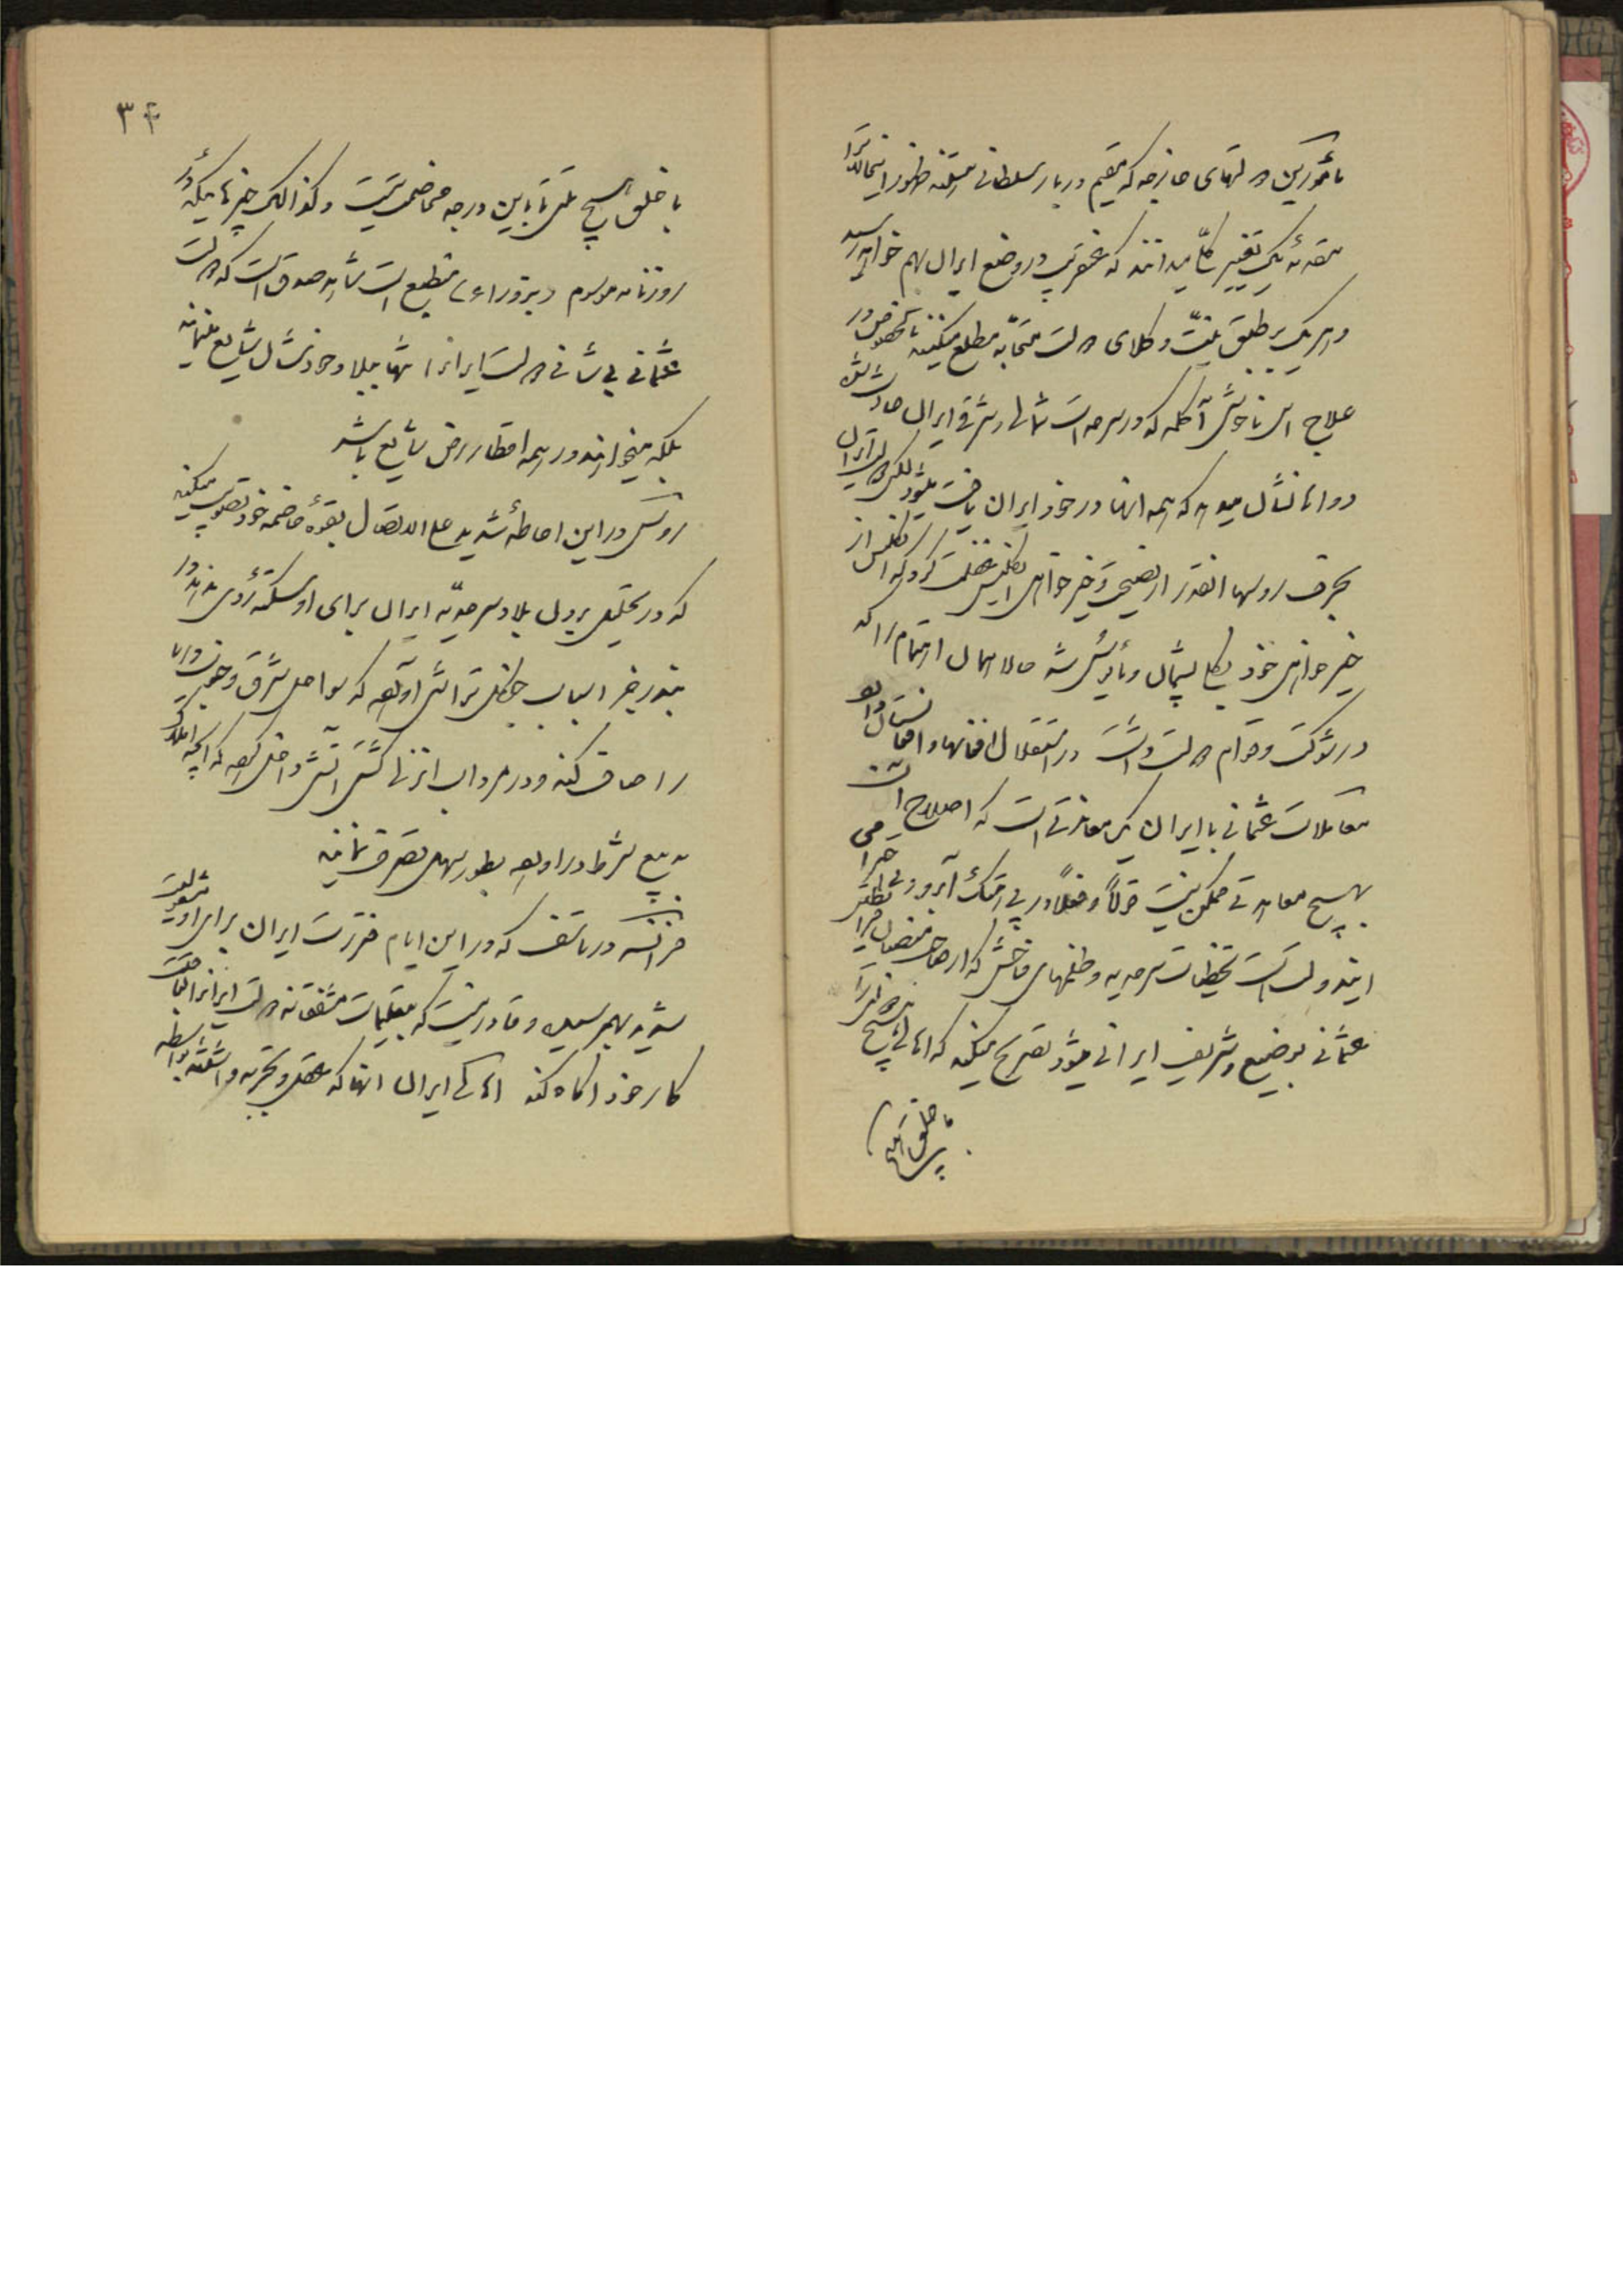 مأمورین دولتهای خارجه که مقیم دربار سلطانی هستند ظهور اینحالت را
مقدمهٔ یک تغییر کلّی میدانند که عنقریب در وضع ایران بهم خواهد رسید
و هر یک بر طبق نیّت وکلای دولت متحابّه مطلع میکنند
علاج این ناخوشی آکله که در سرحدات شمالی و شرقی ایران حادث شده
دواها نشان میدهد که همه آنها در خود ایران یافت میشود لکن دولت ایران
بحرف روسها آنقدر از نصیحت و خیرخواهی انگلیس غفلت کرد که انگلیس از
خیرخواهی خود بکلی پشیمان و مأیوس شد حالا همان اهتمام را که
در شوکت و دوام دولت داشت در استقلال افغانها و افغانستان دارد
معاملات عثمانی با ایران یک معاندتی است که اصلاح آن
بهیچ معاهدتی ممکن نیست قولاً و فعلاً در پی هتک آبرو و بی
ایندولت است تخطیات سرحدیه و ظلمهای فاحش که از
عثمانی بوضیع و شریف ایرانی میشود تصریح میکند که اهالی هیچ
با خلق هیچ
۳۴
با خلق هیچ ملتی تا باین درجه مخاصمی نیست و کذالک چیزهائیکه در
روزنامه موسوم (بزوراء) منطبع است شاهد صدق است که دولت
عثمانی بی‌شأنی دولت ایرانرا تنها ببلاد خودشان شایع
بلکه میخواهند در همه اقطار ارض شایع باشد
روس در این احاطهٔ شدید علی الاتصال بقوهٔ هاضمه خود تقویت میکند
که در تحلیل بردن بلاد سرحدیّه ایران برای او سکتهٔ روی ندهد در
بندر خزر اسباب جنگل تراشی آورده که سواحل شرق و جنوب دریا
را صاف کند و در مرداب انزلی کشتی آتشی داخل کرده که آنچه
به بیع شرط در آورده بطور سهل تصرف نماید
فرانسه در تأسف که در این ایام فترت ایران برای او
شدید بهم رسید و قادر نیست که بتعلیمات مشفقانه دولت ایرانرا
کار خود آگاه کند اهالی ایران آنها که عقل و تجربه داشتند بواسطه